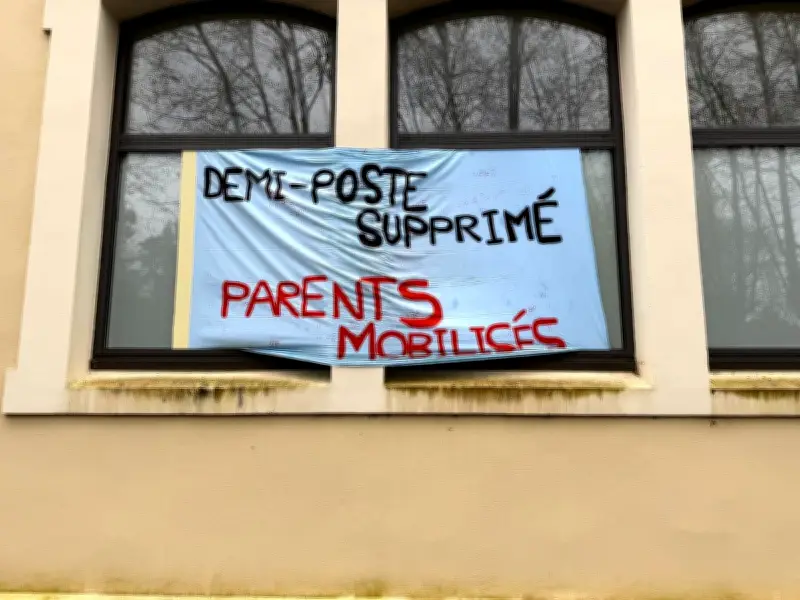 DEMI-POSTE
SUPPRIMÉ
PARENTS
MOBILISÉS